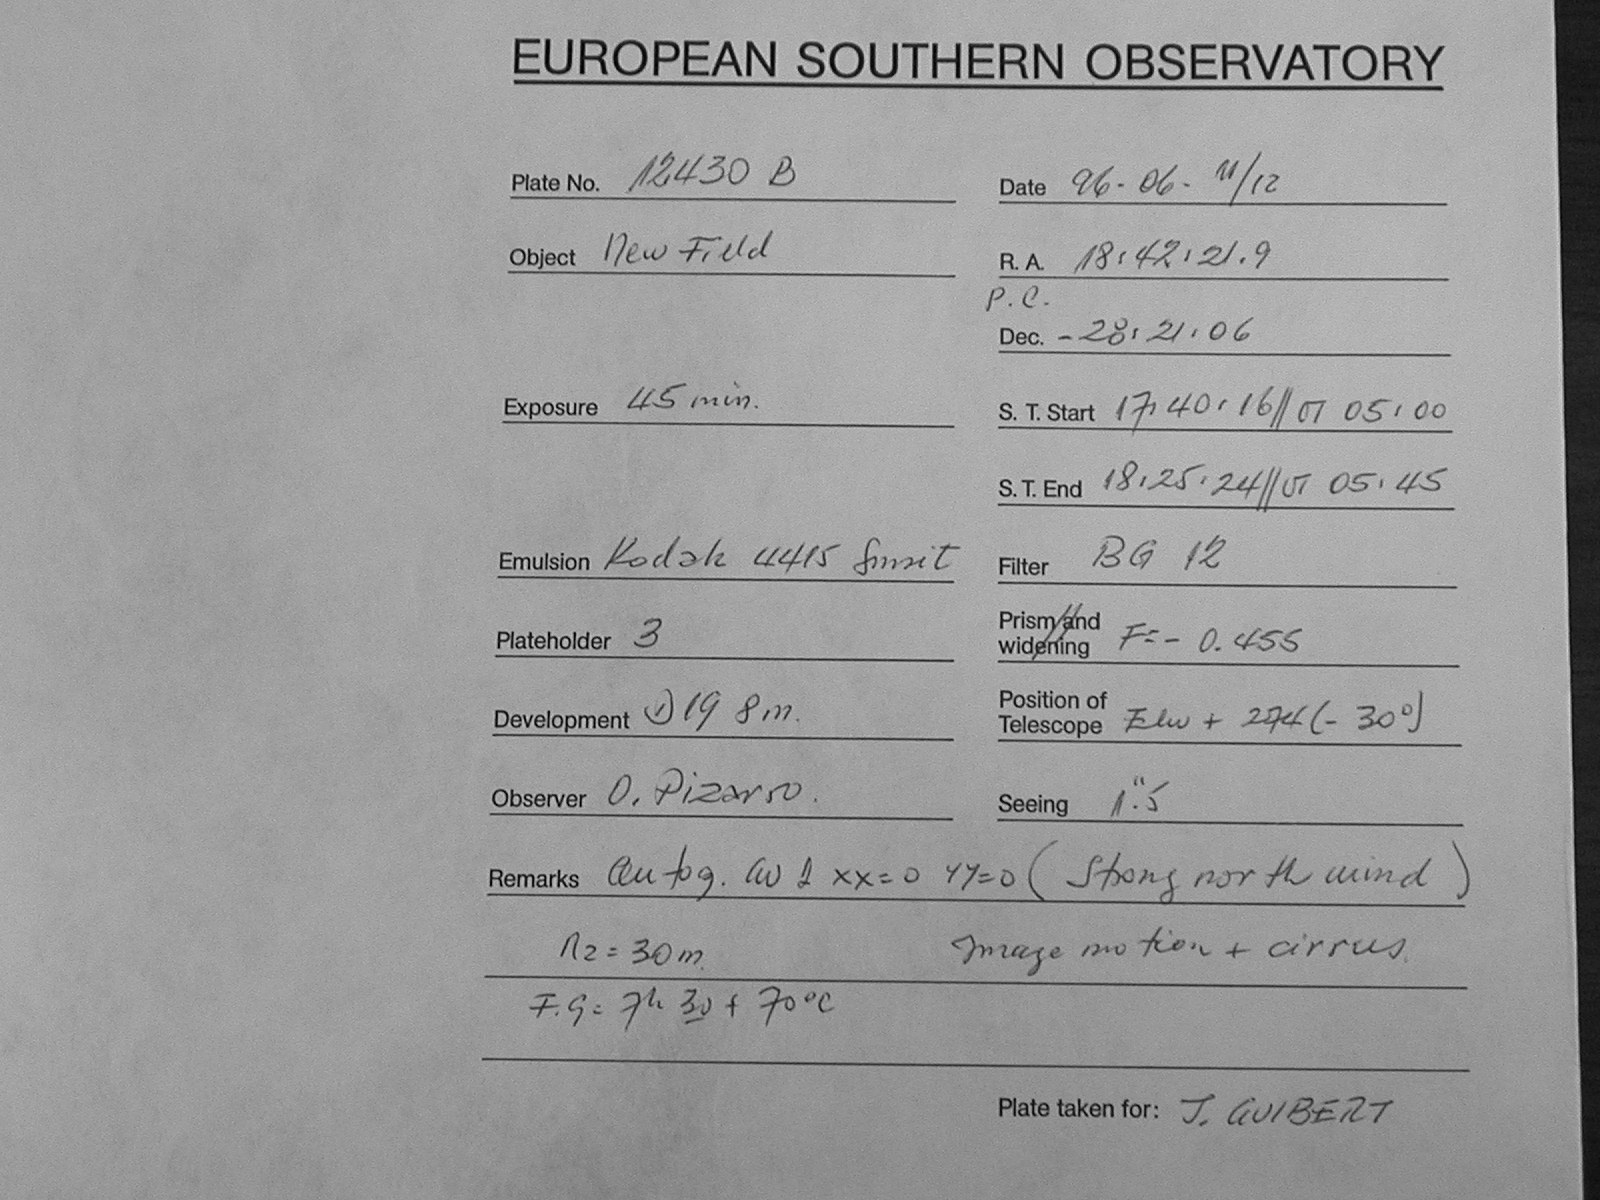 EUROPEAN SOUTHERN OBSERVATORY
Plate No. 12430 B
Date 96-06-11/12
Object New Field
R. A. 18:42:21.9
P.C.
Dec. -28:21:06
Exposure 45 min.
S. T. Start 17:40:16//UT 05:00
S. T. End 18:25:24//UT 05:45
Emulsion Kodak 4415
Filter BG 12
Plateholder 3
Prism and widening F=- 0.455
Development 19 8m.
Position of Telescope + 274 (- 30°)
Observer O. Pizarro.
Seeing 1".5
Remarks Autog. xx=0 yy=0 (Strong north wind)
N2=30m. Image motion + cirrus.
F.G= 7h 30 + 70°C
Plate taken for: J. GUIBERT